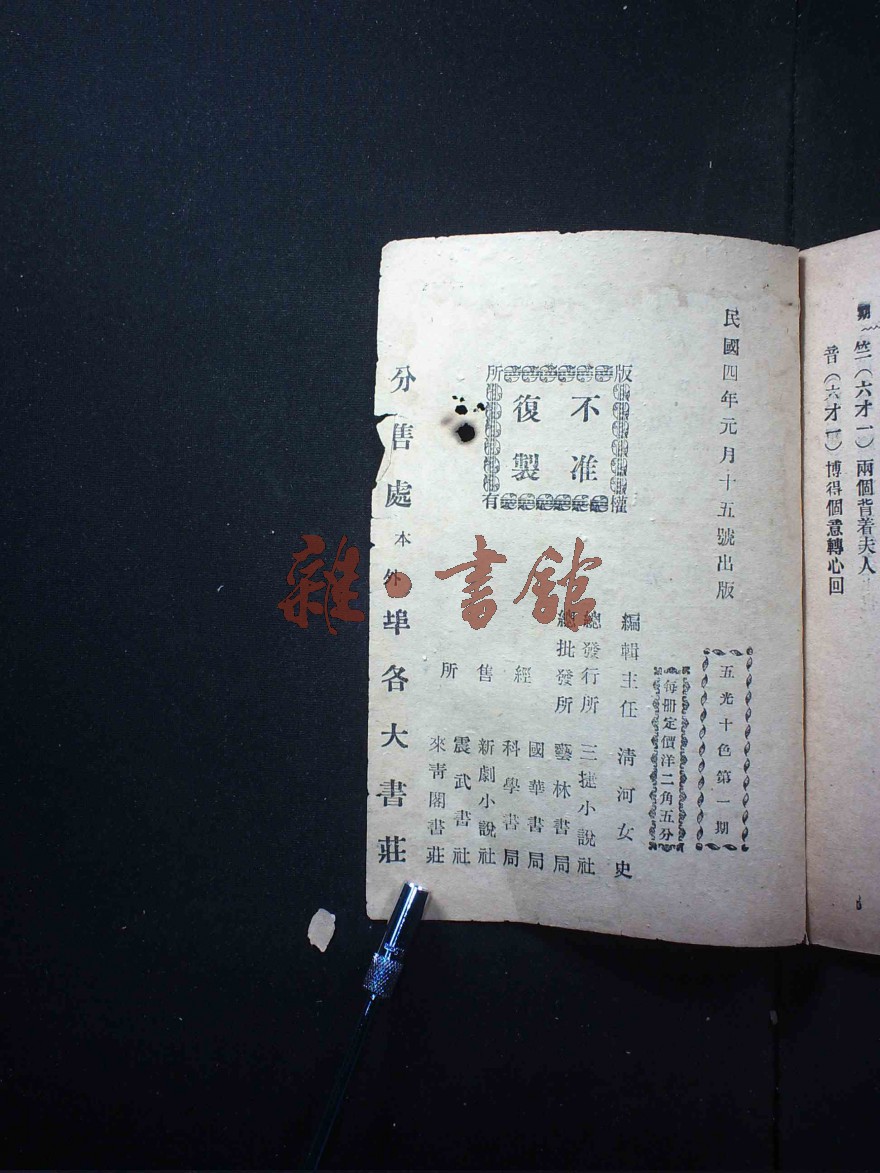 期
竺（六才一）兩個背着夫人
音（六才一）博得個意轉心回
民國四年元月十五號出版
五光十色第一期
每册定價洋二角五分
版權所有
不准
復製
編輯主任 清河女史
總發行所 三捷小說社
總批發所 藝林書局
經售所
國華書局
科學書局
新劇小說社
震武書社
來青閣書莊
分售處 本外埠各大書莊
雜·書館